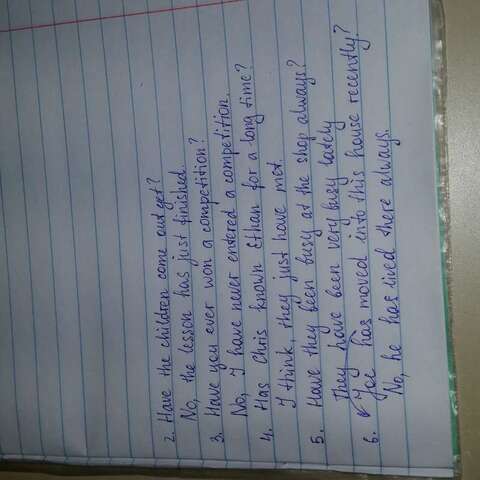 2. Have the children come out yet?
No, the lesson has just finished.
3. Have you ever won a competition?
No, I have never entered a competition.
4. Has Chris known Ethan for a long time?
I think, they just have met.
5. Have they been busy at the shop always?
They have been very busy lately
6. Joe has moved into this house recently?
No, he has lived there always.